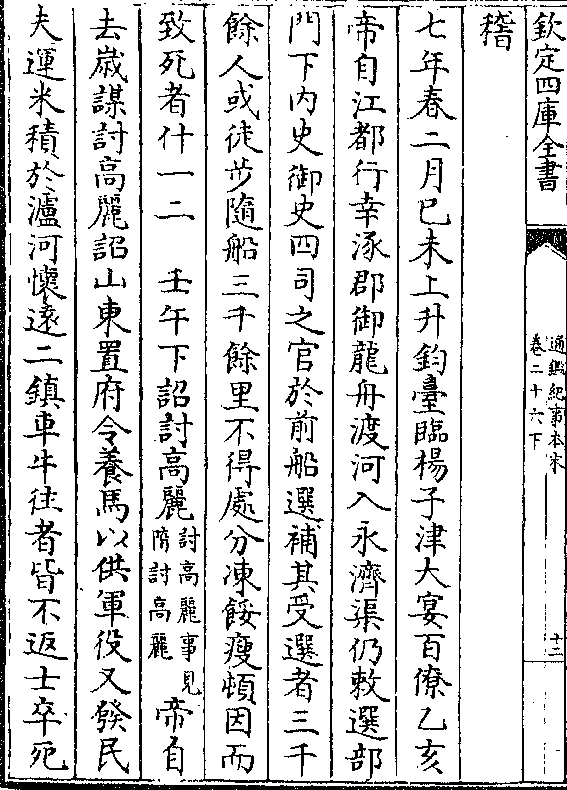 欽定四庫全書
通鑑紀事本末
卷二十六下
十二
稽
七年春二月己未上升釣臺臨楊子津大宴百僚乙亥
帝自江都行幸涿郡御龍舟渡河入永濟渠仍敕選部
門下内史御史四司之官於前船選補其受選者三千
餘人或徒步隨船三千餘里不得處分凍餒瘦頓因而
致死者什一二 壬午下詔討高麗討高麗事見隋討高麗帝自
去歲謀討高麗詔山東置府令養馬以供軍役又發民
夫運米積於瀘河懷遠二鎮車牛往者皆不返士卒死